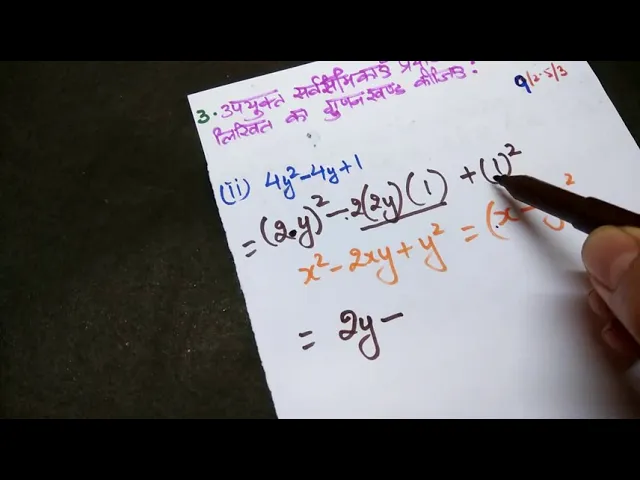 3. उपयुक्त सर्वसमिकाएँ
लिखित का गुणनखण्ड कीजिए:
9/2.5/3
(ii) 4y²-4y+1
= (2y)² - 2(2y)(1) + (1)²
x² - 2xy + y² = (x - y)²
= 2y -